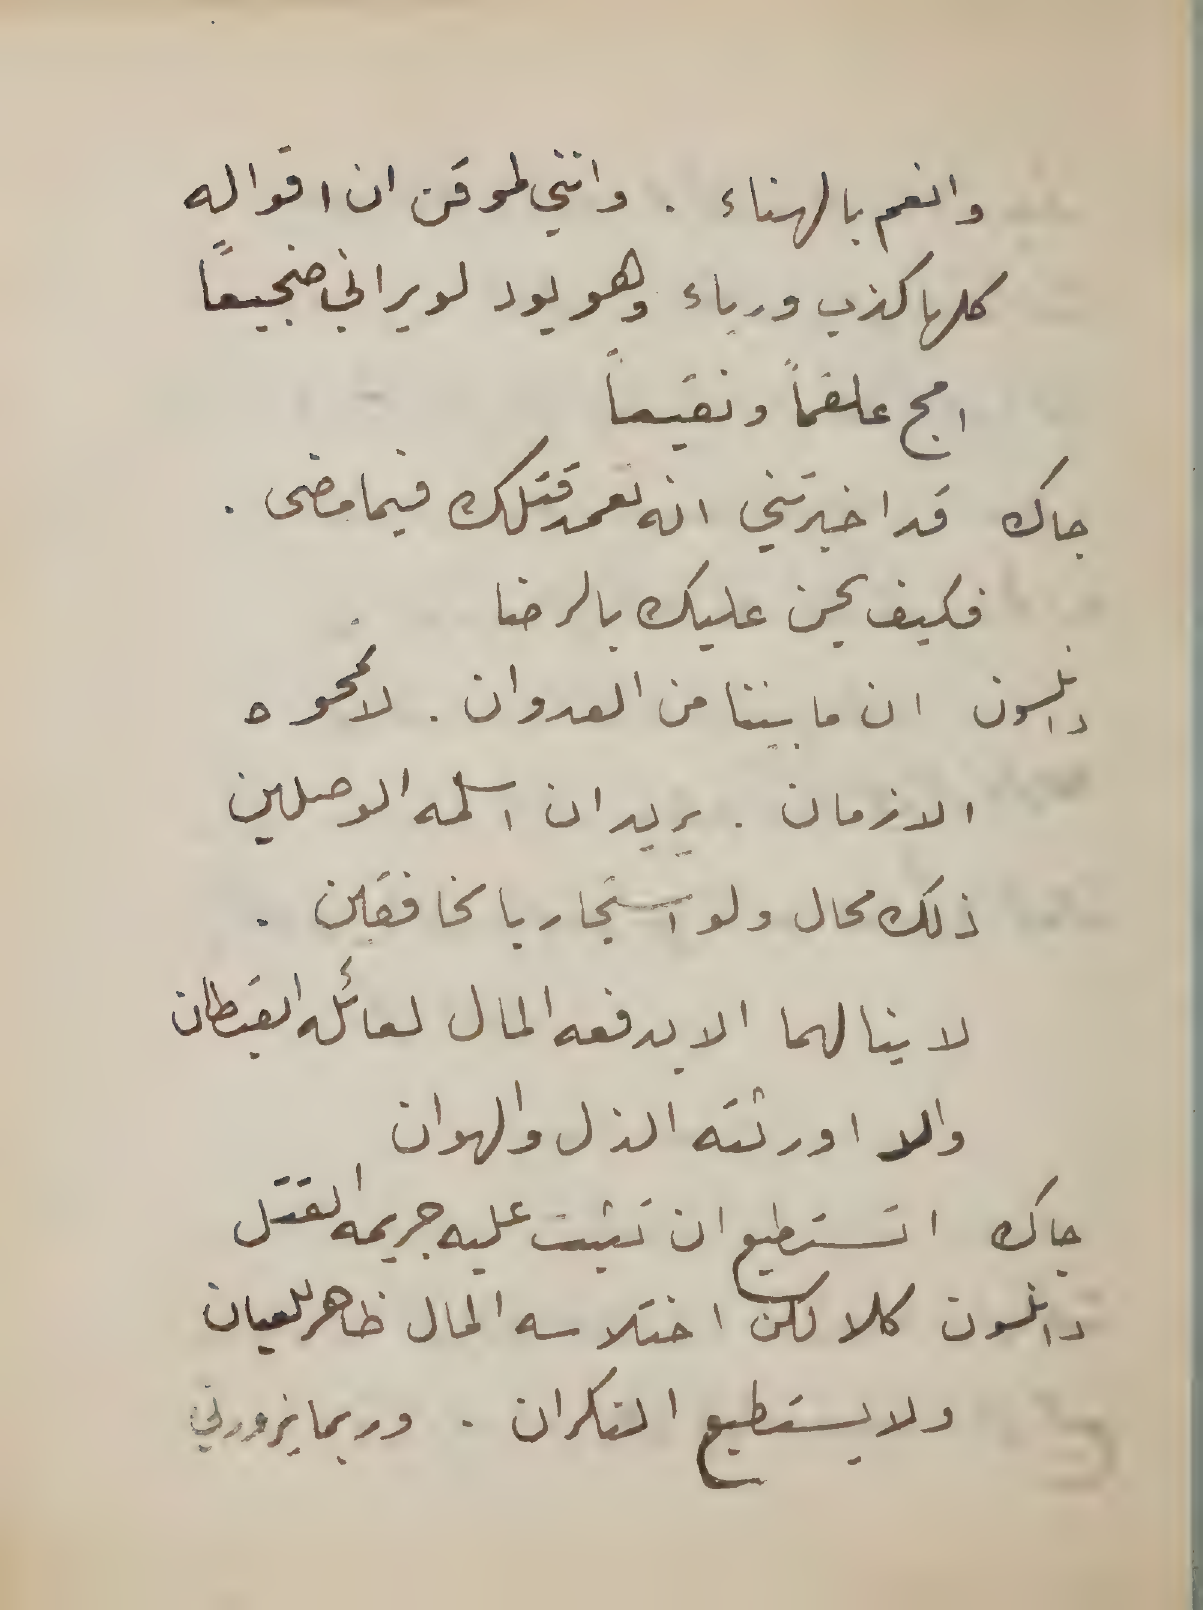 وانعم بالهناء . وانني لموقن ان اقواله
كلها كذب ورياء وهو يود لو يراني ضجيعاً
امج علقماً ونقيعاً
جاك قد اخبرتني انه تعمد قتلك فيما مضى .
فكيف يحن عليك بالرضا
دانلسون ان ما بيننا من العدوان . لا تمحوه
الازمان . يريد ان اسلمه الوصلين
ذلك محال ولو استجار بالخافقين .
لا ينالهما الا بدفعه المال لعائله القبطان
والا اورثته الذل والهوان
جاك اتستطيع ان تثبت عليه جريمه القتل
دانلسون كلا لكن اختلاسه المال ظاهر للعيان
ولا يستطيع النكران . وربما يزورني